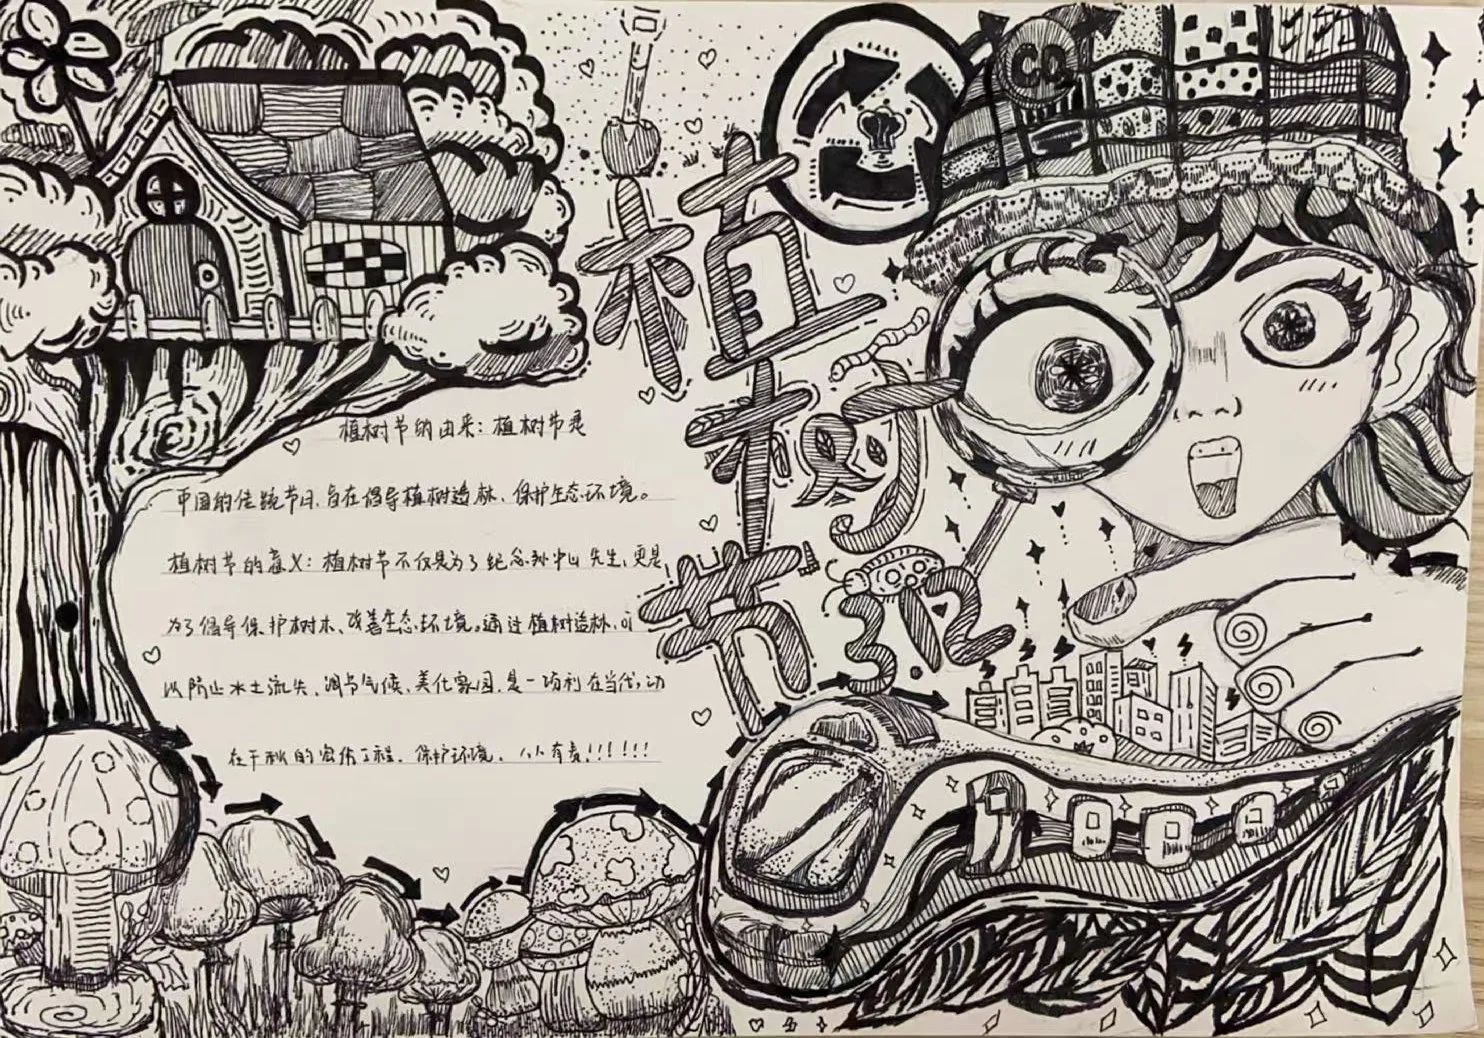 植树节
3.12
CO₂
植树节的由来：植树节是
中国的传统节日，旨在倡导植树造林、保护生态环境。
植树节的意义：植树节不仅是为了纪念孙中山先生，更是
为了倡导保护树木、改善生态环境。通过植树造林，可
以防止水土流失、调节气候、美化家园，是一项利在当代，功
在千秋的宏伟工程。保护环境，人人有责！！！！！！